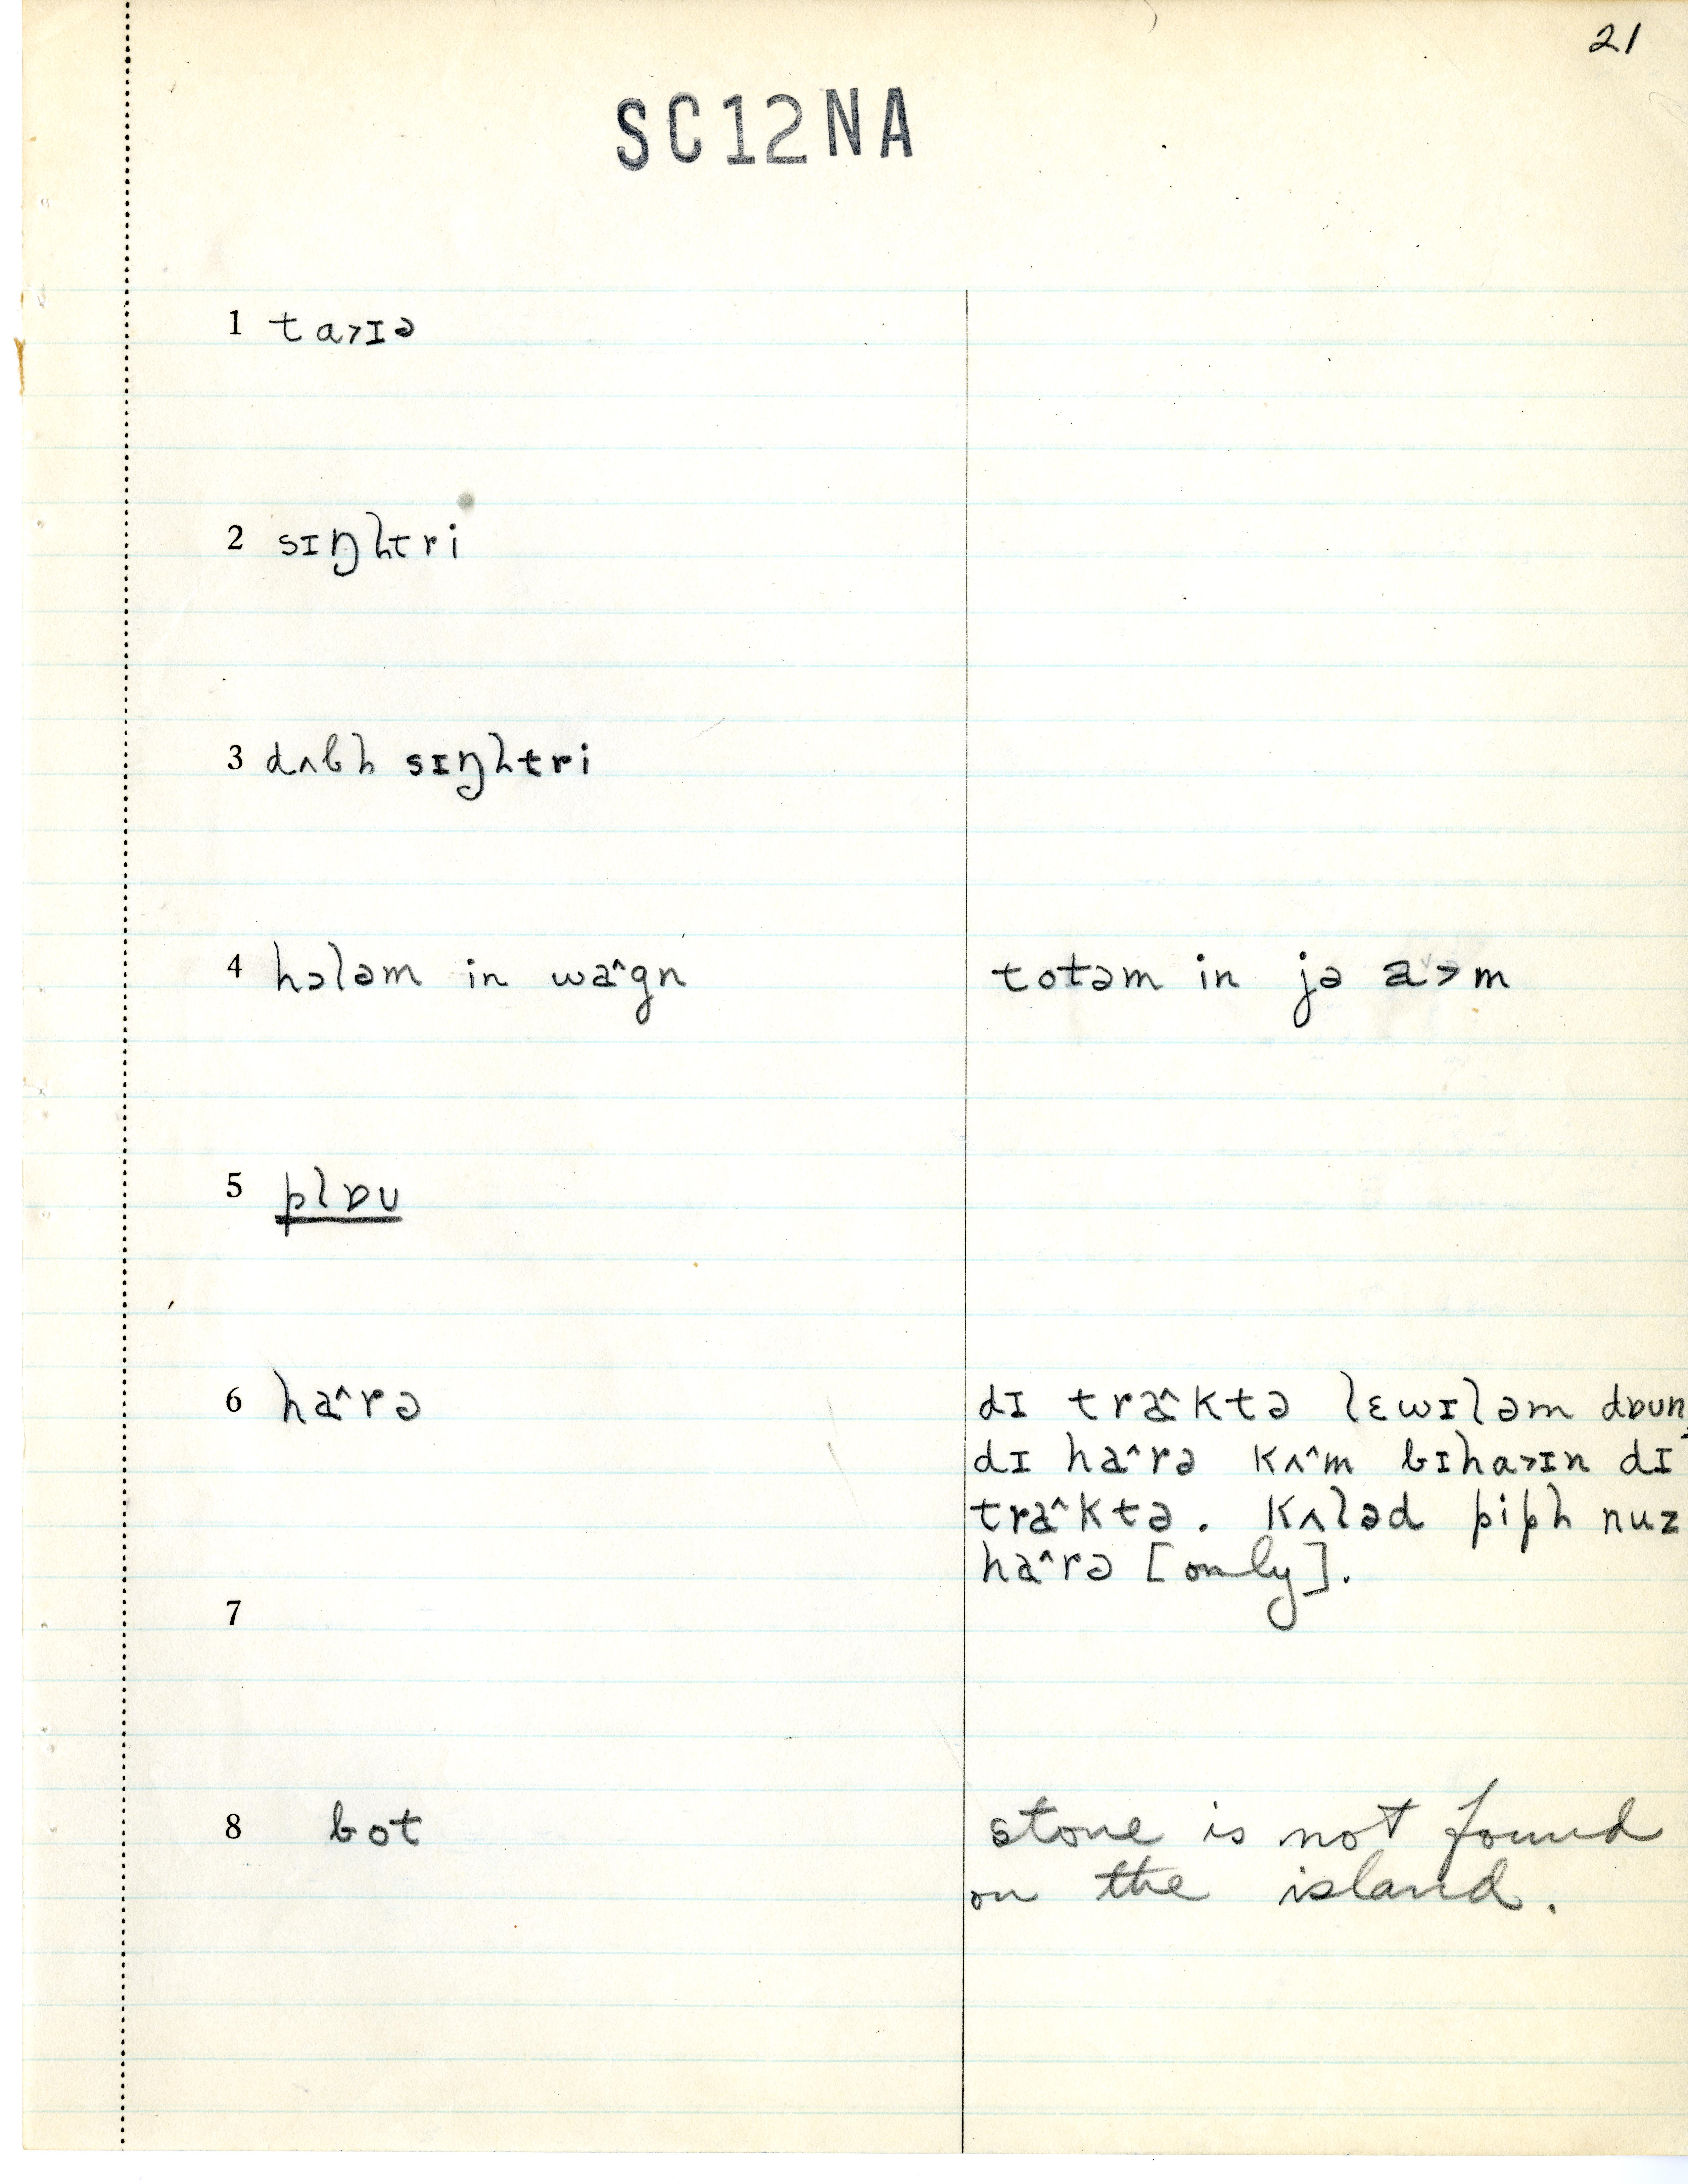 21
SC12NA
1 ta˃ɪə
2 sɪŋḷtri
3 dʌbḷ sɪŋḷtri
4 hɔləm in wa^gn totəm in jə a˃m
5 plɒu
6 ha^rə dɪ tra^ktə lɛwɪləm dɒun,
dɪ ha^rə kʌ^m bɪha˃ɪn dɪ
tra^ktə. kʌləd pipḷ nuz
ha^rə [only].
7
8 bot stone is not found
on the island.